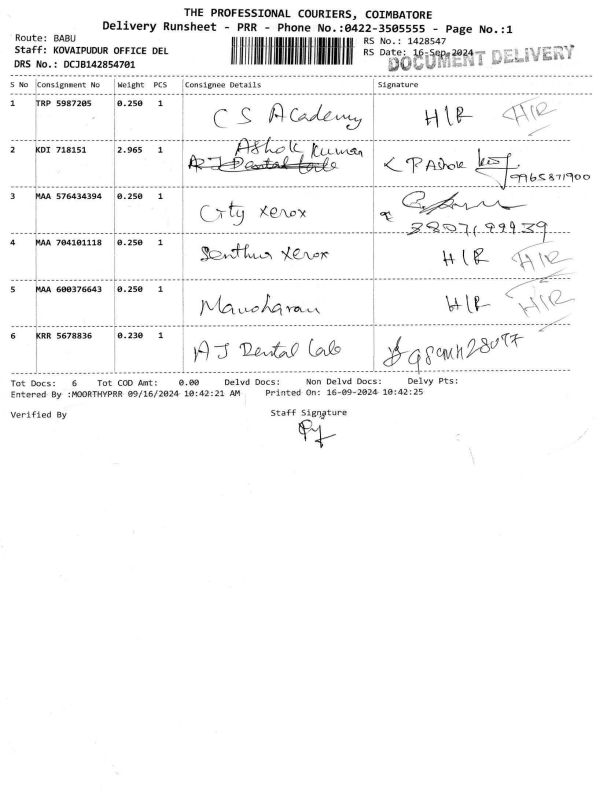 THE PROFESSIONAL COURIERS, COIMBATORE
Delivery Runsheet - PRR - Phone No.:0422-3505555 - Page No.:1
Route: BABU
RS No.: 1428547
Staff: KOVAIPUDUR OFFICE DEL
RS Date: 16-Sep-2024
DOCUMENT DELIVERY
DRS No.: DCJB142854701
S No Consignment No Weight PCS Consignee Details Signature
1 TRP 5987205 0.250 1 C S Academy H/R H/R
2 KDI 718151 2.965 1 Ashok Kumar
A J Dental Lab K P Ashok
9965871900
3 MAA 576434394 0.250 1 City xerox
8807199939
4 MAA 704101118 0.250 1 Senthur xerox H/R H/R
5 MAA 600376643 0.250 1 Manoharan H/R H/R
6 KRR 5678836 0.230 1 A J Dental Lab
Tot Docs: 6 Tot COD Amt: 0.00 Delvd Docs: Non Delvd Docs: Delvy Pts:
Entered By :MOORTHYPRR 09/16/2024 10:42:21 AM Printed On: 16-09-2024 10:42:25
Verified By Staff Signature